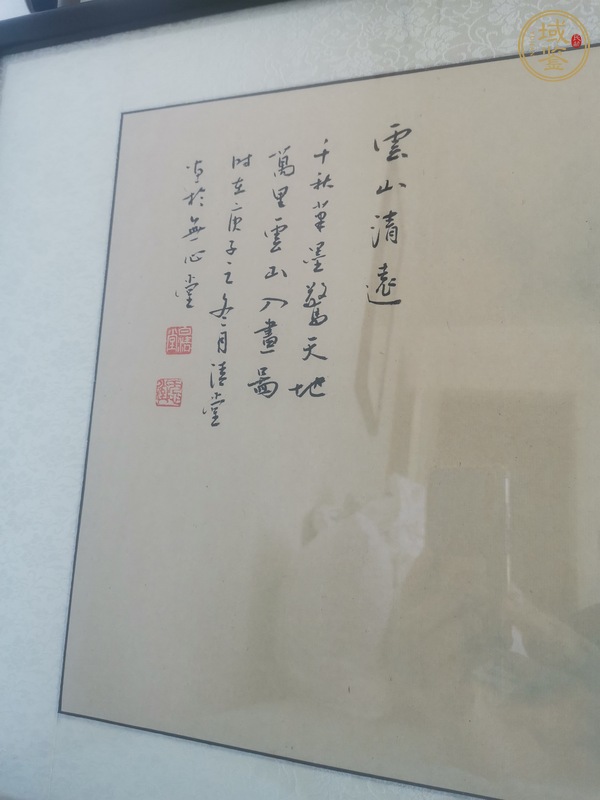 雲山清遠
千秋筆墨驚天地
萬里雲山入畫圖
时在庚子之冬月清堂
寫於無心堂
域鉴